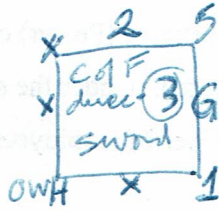 X 2 5
C of F
X duce- 3 G
sword
OWH X 1